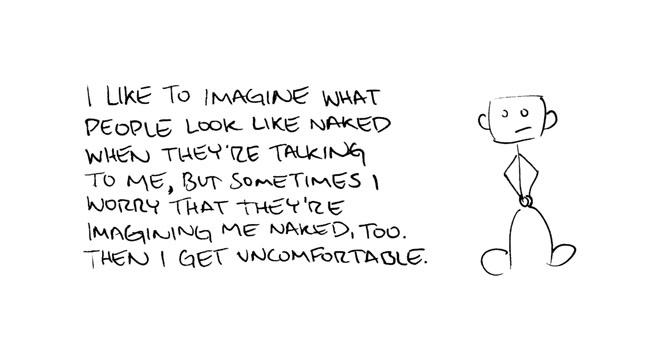 I LIKE TO IMAGINE WHAT
PEOPLE LOOK LIKE NAKED
WHEN THEY'RE TALKING
TO ME, BUT SOMETIMES I
WORRY THAT THEY'RE
IMAGINING ME NAKED, TOO.
THEN I GET UNCOMFORTABLE.